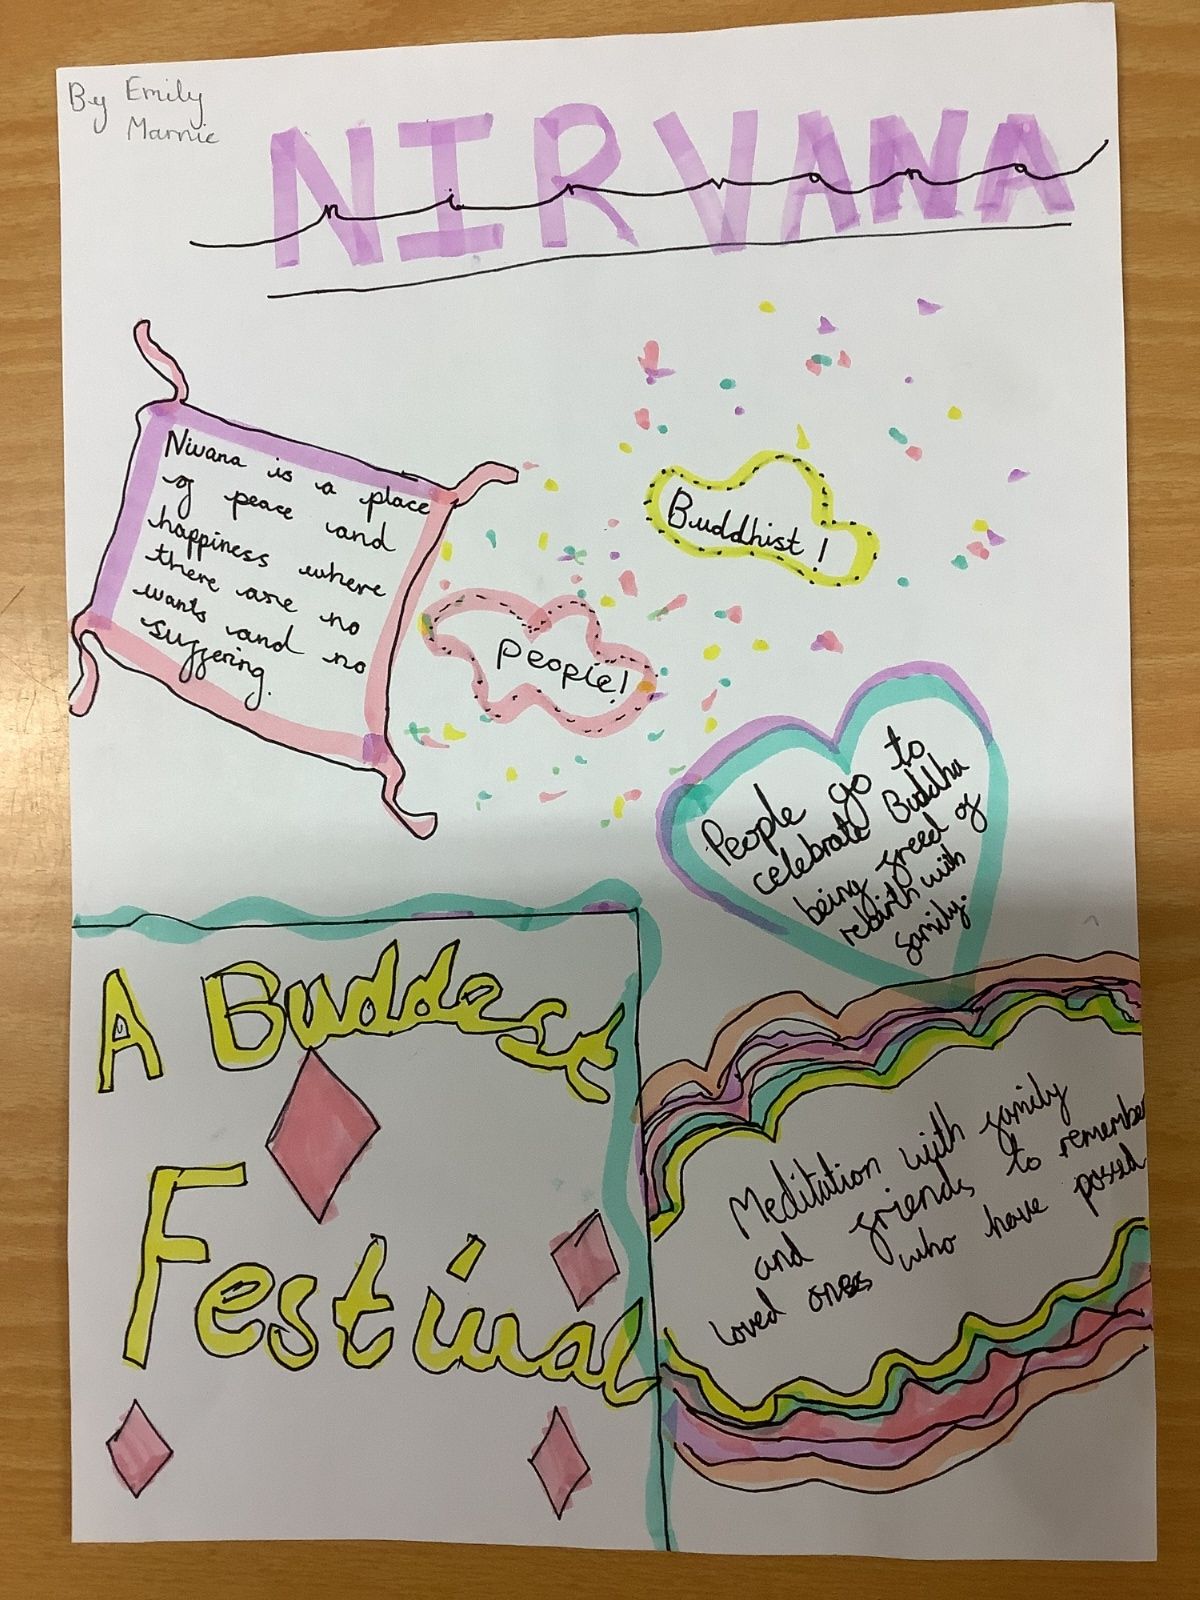 By Emily
Marnie
NIRVANA
nirvana
Nivana is a place
of peace and
happiness where
there are no
wants and no
suffering.
Buddhist!
People!
People go to
celebrate Buddha
being freed of
rebirth with
family.
A Buddest
Festival
Meditation with family
and friends to remember
loved ones who have passed